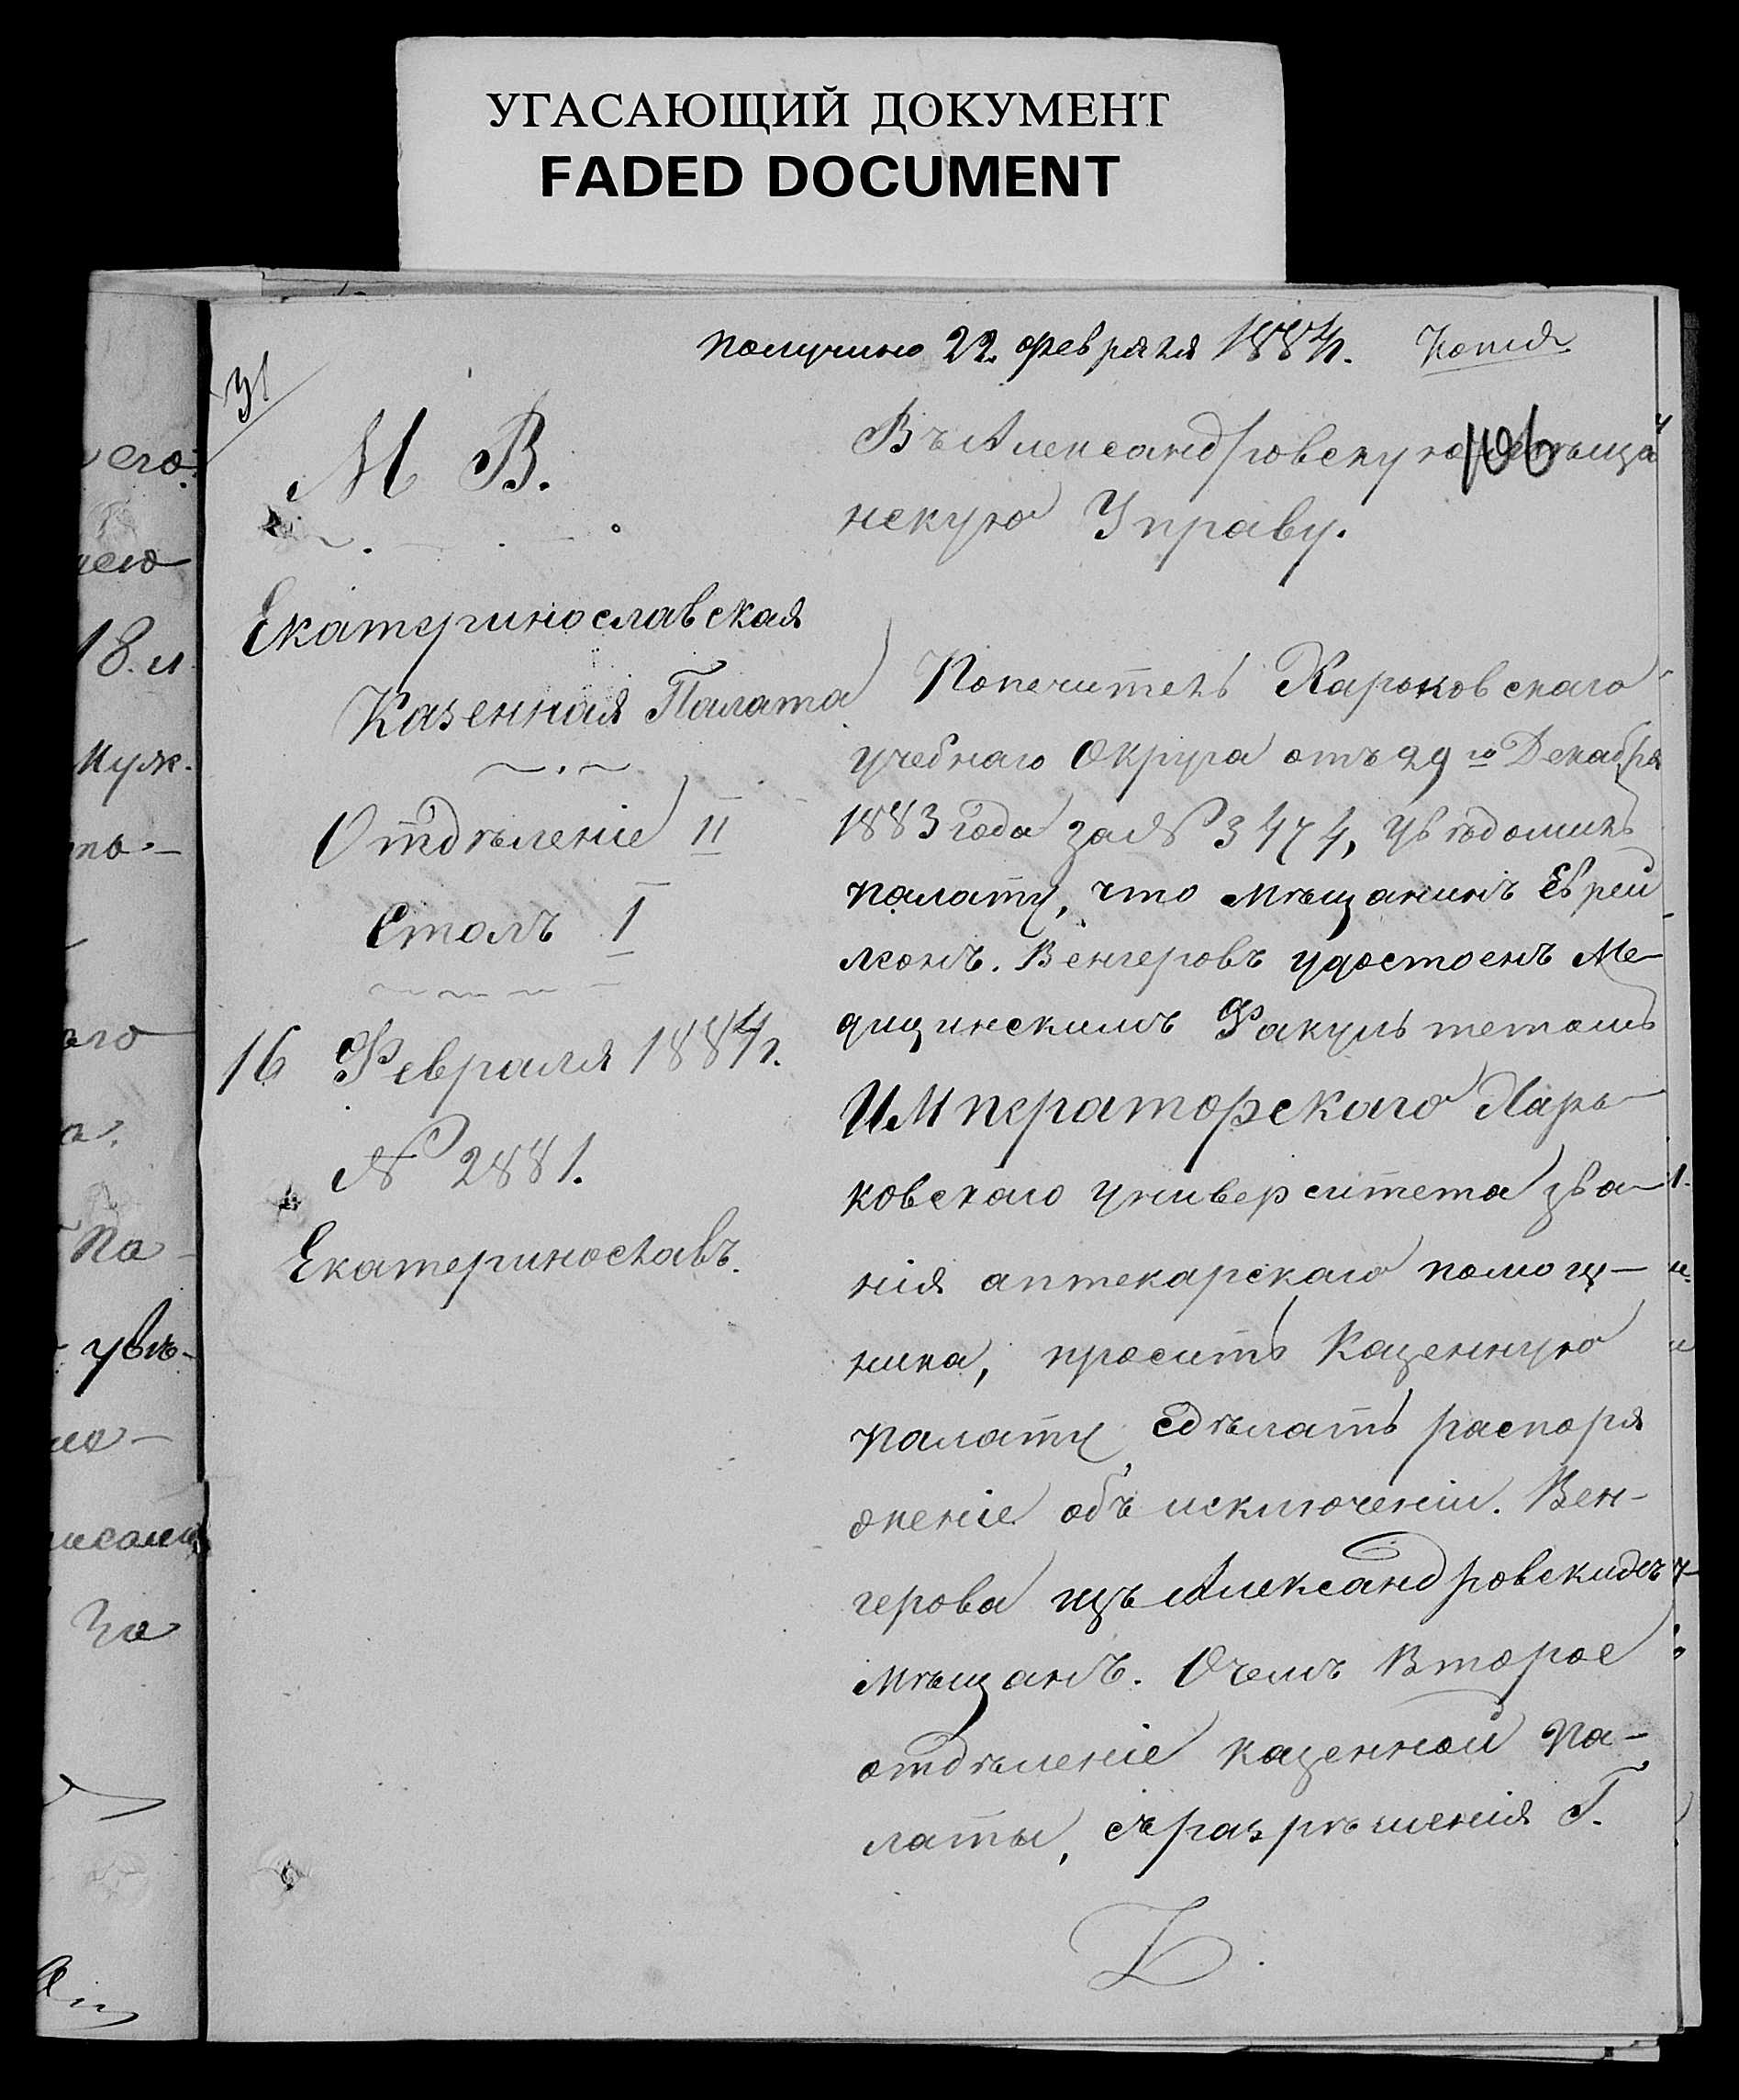 УГАСАЮЩИЙ ДОКУМЕНТ
FADED DOCUMENT
получено 22 февраля 1884 г. Копия
31
106
М В.
Екатеринославская
Казенная Палата
Отдѣленіе II
Столъ I
16 Февраля 1884 г.
№ 2881.
Екатеринославъ.
Въ Александровскую Мѣща
нскую Управу.
Попечитель Харьковскаго
учебнаго Округа отъ 29го Декабря
1883 года за № 3474, увѣдомилъ
палату, что мѣщанинъ Еврей
Леонъ. Венгеровъ удостоенъ Ме-
дицинскимъ Факультетомъ
Императорскаго Харь-
ковскаго университета зва-
нія аптекарскаго помощ-
ника, проситъ Казенную
палату сдѣлать распоря
женіе объ исключеніи. Вен-
герова изъ Александровскихъ
мѣщанъ. О чемъ Второе
отдѣленіе казенной Па-
латы, съ разрѣшенія Г.
его
18.
Муж.
аго
Па-
увѣ-
За